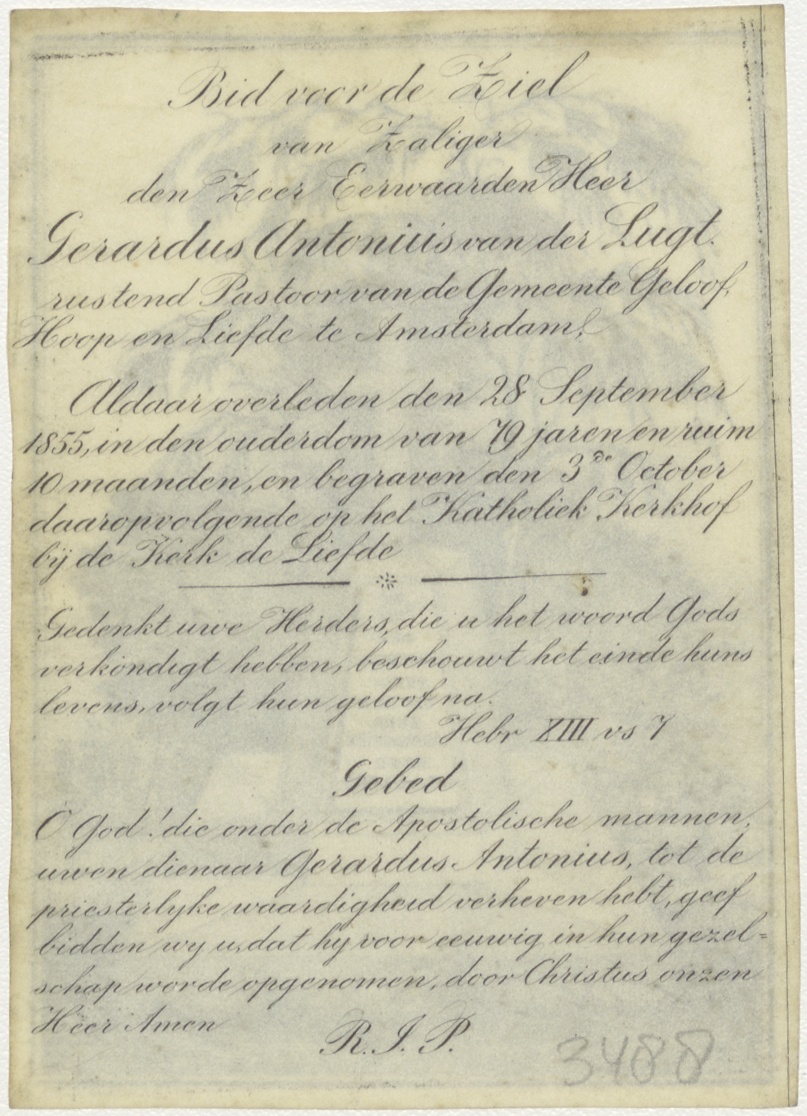 Bid voor de Ziel
van Zaliger
den Zeer Eerwaarden Heer
Gerardus Antonius van der Lugt.
rustend Pastoor van de Gemeente Geloof,
Hoop en Liefde te Amsterdam,
Aldaar overleden den 28 September
1855, in den ouderdom van 79 jaren en ruim
10 maanden, en begraven den 3de October
daaropvolgende op het Katholiek Kerkhof
bij de Kerk de Liefde
Gedenkt uwe Herders, die u het woord Gods
verkondigt hebben, beschouwt het einde huns
levens, volgt hun geloof na.
Hebr XIII vs 7
Gebed
O God! die onder de Apostolische mannen,
uwen dienaar Gerardus Antonius, tot de
priesterlyke waardigheid verheven hebt, geef
bidden wy u, dat hy voor eeuwig in hun gezel=
schap worde opgenomen, door Christus onzen
Heer Amen
R. I. P.
3488